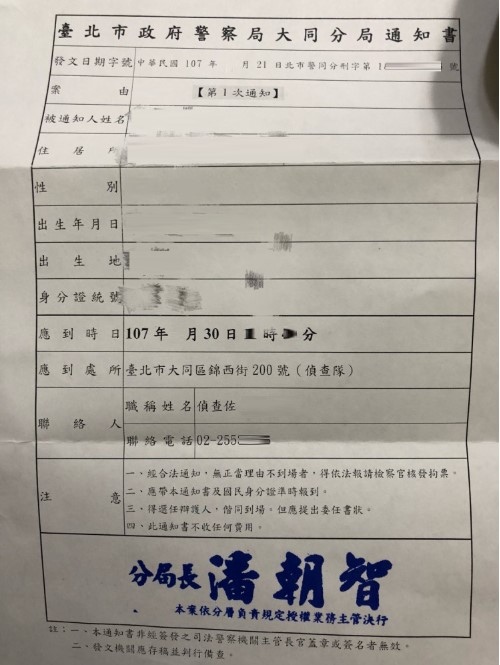 臺北市政府警察局大同分局通知書
發文日期字號 中華民國 107 年 月 21 日北市警同分刑字第 號
案由 【第1次通知】
被通知人姓名
住居所
性別
出生年月日
出生地
身分證統號
應到時日 107 年 月 30 日 時 分
應到處所 臺北市大同區錦西街 200 號（偵查隊）
聯絡人
職稱姓名 偵查佐
聯絡電話 02-255
注意
一、經合法通知，無正當理由不到場者，得依法報請檢察官核發拘票。
二、應帶本通知書及國民身分證準時報到。
三、得選任辯護人，偕同到場。但應提出委任書狀。
四、此通知書不收任何費用。
分局長 潘朝智
本案依分層負責規定授權業務主管決行
註：一、本通知書非經簽發之司法警察機關主管長官蓋章或簽名者無效。
二、發文機關應存稿並列行備查。